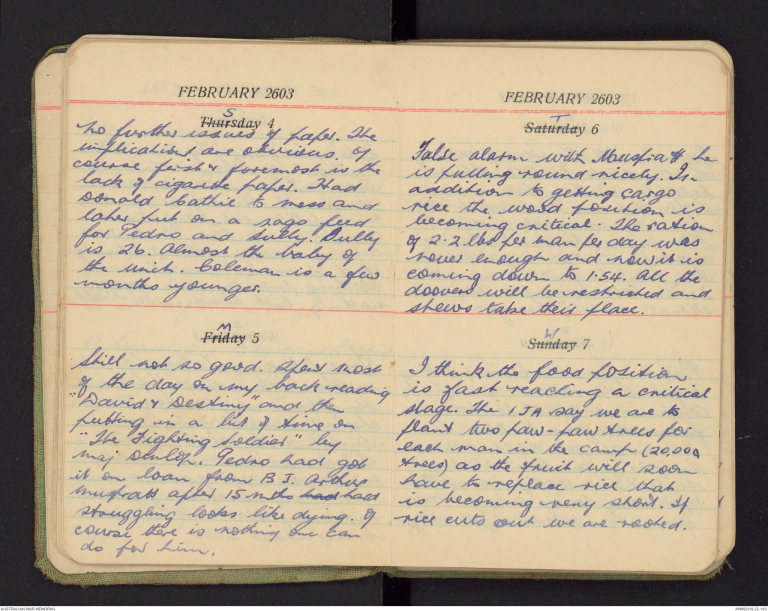 FEBRUARY 2603
S
Thursday 4
No further issues of paper. The
implications are obvious. Of
course first & foremost is the
lack of cigarette paper. Had
Donald Cathie to mess and
later put on a sago feed
for Pedro and Dully. Dully
is 26. Almost the baby of
the unit. Coleman is a few
months younger.
M
Friday 5
Still not so good. Spent most
of the day on my back reading
"David & Destiny" and then
putting in a bit of time on
"The Fighting Soldier" by
Maj Dunlop. Pedro had got
it on loan from B J. Arthur
Musfratt after 15 mths had hard
struggling looks like dying. Of
course there is nothing one can
do for him.
FEBRUARY 2603
T
Saturday 6
False alarm with Musfratt he
is pulling round nicely. In
addition to getting cargo
rice the wood position is
becoming critical. The ration
of 2.2 lbs per man per day was
never enough and now it is
coming down to 1.54. All the
doovers will be restricted and
stews take their place.
W
Sunday 7
I think the food position
is fast reaching a critical
stage. The IJA say we are to
plant two paw-paw trees for
each man in the camp (20,000
trees) as the fruit will soon
have to replace rice that
is becoming very short. If
rice cuts out we are rooted.
AUSTRALIAN WAR MEMORIAL